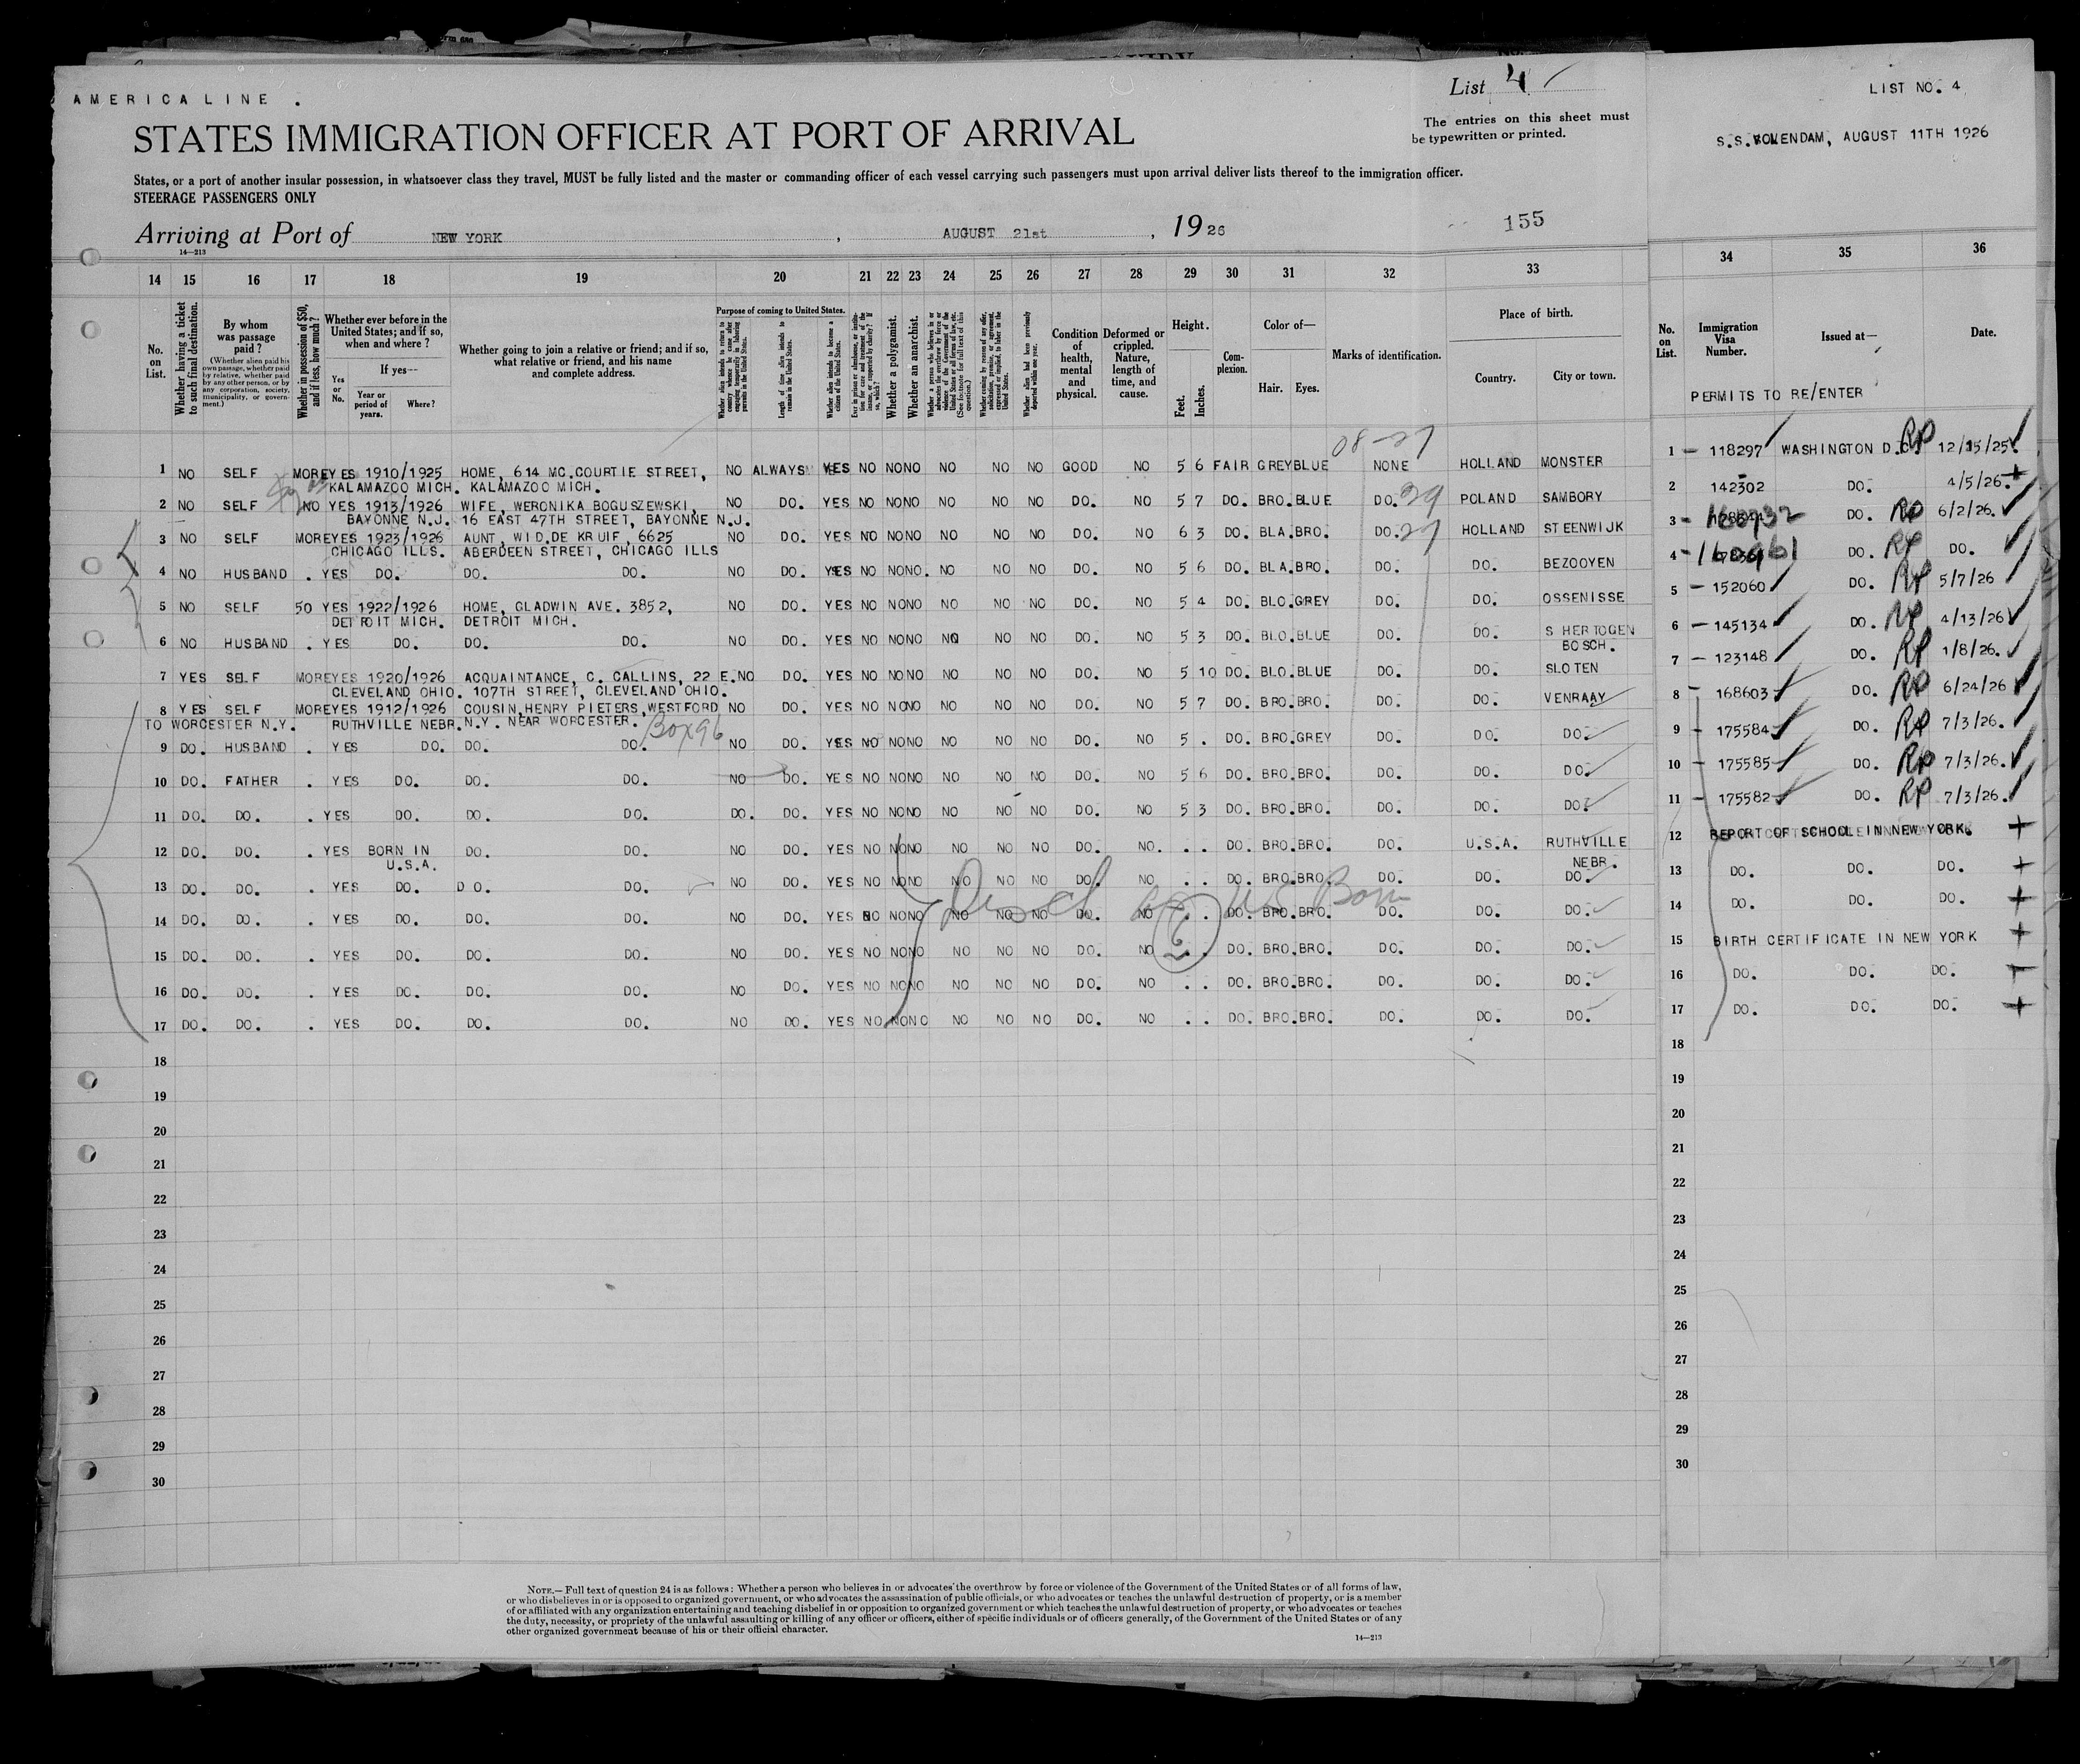 AMERICA LINE .
List 4
LIST NO. 4
STATES IMMIGRATION OFFICER AT PORT OF ARRIVAL
The entries on this sheet must be typewritten or printed.
S.S. VOLENDAM, AUGUST 11TH 1926
States, or a port of another insular possession, in whatsoever class they travel, MUST be fully listed and the master or commanding officer of each vessel carrying such passengers must upon arrival deliver lists thereof to the immigration officer.
STEERAGE PASSENGERS ONLY
Arriving at Port of NEW YORK , AUGUST 21st , 1926 155
14—213
14 15 16 17 18 19 20 21 22 23 24 25 26 27 28 29 30 31 32 33 34 35 36
No. on List.
Whether having a ticket to such final destination.
By whom was passage paid?
(Whether alien paid his own passage, whether paid by relative, whether paid by any other person, or by any corporation, society, municipality, or government.)
Whether in possession of $50, and if less, how much?
Whether ever before in the United States; and if so, when and where?
If yes—
Yes or No.
Year or period of years.
Where?
Whether going to join a relative or friend; and if so, what relative or friend, and his name and complete address.
Purpose of coming to United States.
Length of time alien intends to remain in the United States.
Whether alien intends to become a citizen of the United States.
Whether a polygamist.
Whether an anarchist.
Condition of health, mental and physical.
Deformed or crippled. Nature, length of time, and cause.
Height.
Feet. Inches.
Complexion.
Color of—
Hair. Eyes.
Marks of identification.
Place of birth.
Country. City or town.
No. on List.
Immigration Visa Number.
Issued at—
Date.
PERMITS TO RE/ENTER
08-27
1 NO SELF MORE YES 1910/1925 HOME, 614 MC.COURTIE STREET, NO ALWAYS YES NO NO NO NO NO NO GOOD NO 5 6 FAIR GREY BLUE NONE HOLLAND MONSTER 1 — 118297 WASHINGTON D.C. RP 12/15/25.
KALAMAZOO MICH. KALAMAZOO MICH.
2 NO SELF NO YES 1913/1926 WIFE, WERONIKA BOGUSZEWSKI, NO DO. YES NO NO NO NO NO NO DO. NO 5 7 DO. BRO. BLUE DO. 29 POLAND SAMBORY 2 142302 DO. 4/5/26.
BAYONNE N.J. 16 EAST 47TH STREET, BAYONNE N.J.
3 NO SELF MORE YES 1923/1926 AUNT, WID.DE KRUIF, 6625 NO DO. YES NO NO NO NO NO NO DO. NO 6 3 DO. BLA. BRO. DO. 27 HOLLAND STEENWIJK 3 - 160932 DO. RP 6/2/26.
CHICAGO ILLS. ABERDEEN STREET, CHICAGO ILLS
4 NO HUSBAND . YES DO. DO. DO. NO DO. YES NO NO NO. NO NO NO DO. NO 5 6 DO. BLA. BRO. DO. DO. BEZOOYEN 4 - 160961 DO. RP DO.
5 NO SELF 50 YES 1922/1926 HOME, GLADWIN AVE. 3852, NO DO. YES NO NO NO NO NO NO DO. NO 5 4 DO. BLO. GREY DO. DO. OSSENISSE 5 — 152060 DO. RP 5/7/26
DETROIT MICH. DETROIT MICH.
6 NO HUSBAND . YES DO. DO. DO. NO DO. YES NO NO NO NO NO NO DO. NO 5 3 DO. BLO. BLUE DO. DO. S HERTOGEN 6 — 145134 DO. RP 4/13/26
BOSCH.
7 YES SELF MORE YES 1920/1926 ACQUAINTANCE, C. CALLINS, 22 E. NO DO. YES NO NO NO NO NO NO DO. NO 5 10 DO. BLO. BLUE DO. DO. SLOTEN 7 — 123148 DO. RP 1/8/26.
CLEVELAND OHIO. 107TH STREET, CLEVELAND OHIO.
8 YES SELF MORE YES 1912/1926 COUSIN, HENRY PIETERS, WESTFORD NO DO. YES NO NO NO NO NO NO DO. NO 5 7 DO. BRO. BRO. DO. DO. VENRAAY 8 - 168603 DO. RP 6/24/26
TO WORCESTER N.Y. RUTHVILLE NEBR. N.Y. NEAR WORCESTER. Box 96
9 DO. HUSBAND . YES DO. DO. DO. NO DO. YES NO NO NO NO NO NO DO. NO 5 . DO. BRO. GREY DO. DO. DO. 9 — 175584 DO. RP 7/3/26.
10 DO. FATHER . YES DO. DO. DO. NO DO. YES NO NO NO NO NO NO DO. NO 5 6 DO. BRO. BRO. DO. DO. DO. 10 — 175585 DO. RP 7/3/26.
11 DO. DO. . YES DO. DO. DO. DO. DO. YES NO NO NO NO NO NO DO. NO 5 3 DO. BRO. BRO. DO. DO. DO. 11 — 175582 DO. RP 7/3/26.
12 DO. DO. . YES BORN IN DO. DO. NO DO. YES NO NO NO NO NO NO DO. NO. . . DO. BRO. BRO. DO. U.S.A. RUTHVILLE 12 REPORT OF SCHOOL IN NEW YORK.
U.S.A. NEBR.
13 DO. DO. . YES DO. DO. DO. NO DO. YES NO NO NO NO NO NO DO. NO . . DO. BRO. BRO. DO. DO. DO. 13 DO. DO. DO.
14 DO. DO. . YES DO. DO. DO. NO DO. YES NO NO NO NO NO NO DO. NO . . DO. BRO. BRO. DO. DO. DO. 14 DO. DO. DO.
6
15 DO. DO. . YES DO. DO. DO. NO DO. YES NO NO NO NO NO NO DO. NO . . DO. BRO. BRO. DO. DO. DO. 15 BIRTH CERTIFICATE IN NEW YORK
16 DO. DO. . YES DO. DO. DO. NO DO. YES NO NO NO NO NO NO DO. NO . . DO. BRO. BRO. DO. DO. DO. 16 DO. DO. DO.
17 DO. DO. . YES DO. DO. DO. NO DO. YES NO NO NO NO NO NO DO. NO . . DO. BRO. BRO. DO. DO. DO. 17 DO. DO. DO.
18 18
19 19
20 20
21 21
22 22
23 23
24 24
25 25
26 26
27 27
28 28
29 29
30 30
NOTE.—Full text of question 24 is as follows: Whether a person who believes in or advocates the overthrow by force or violence of the Government of the United States or of all forms of law,
or who disbelieves in or is opposed to organized government, or who advocates the assassination of public officials, or who advocates or teaches the unlawful destruction of property, or is a member
of or affiliated with any organization entertaining and teaching disbelief in or opposition to organized government or which teaches the unlawful destruction of property, or who advocates or teaches
the duty, necessity, or propriety of the unlawful assaulting or killing of any officer or officers, either of specific individuals or of officers generally, of the Government of the United States or of any
other organized government because of his or their official character.
14—213